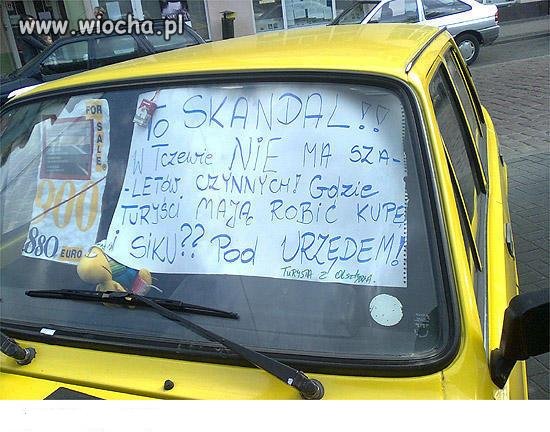 www.wiocha.pl
FOR SALE
900
880 EURO
To SKANDAL!!
W Tczewie NIE MA SZA-
-LETÓW CZYNNYCH! Gdzie
TURYŚCI MAJĄ ROBIĆ KUPĘ
i SIKU?? Pod URZĘDEM!
TURYSTA Z Olsztyna.